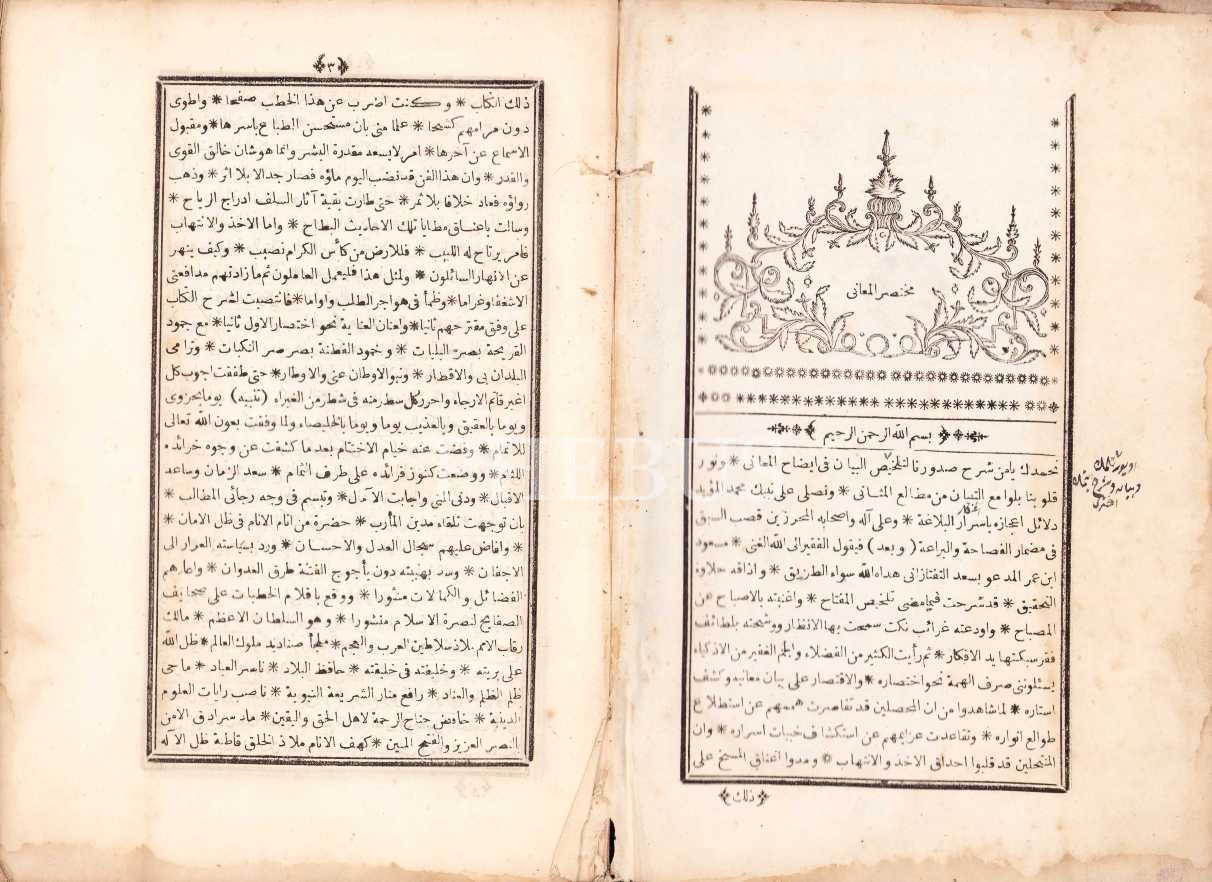 مختصر المعانى
بسم الله الرحمن الرحيم
نحمدك يامن شرح صدورنا لتلخيص البيان فى ايضاح المعانى * ونور
قلوبنا بلوامع التبيان من مطالع المثانى * ونصلى على نبيك محمد المؤيد
دلائل اعجازه باسرار البلاغة * وعلى آله واصحابه المحرزين قصب السبق
فى مضمار الفصاحة والبراعة ( وبعد ) فيقول الفقير الى الله الغنى * مسعود
ابن عمر المدعو بسعد التفتازانى هداه الله سواء الطريق * واذاقه حلاوة
التحقيق * قد شرحت فيما مضى تلخيص المفتاح * واغنيته بالاصباح عن
المصباح * واودعته غرائب نكت سمحت بها الانظار ووشحته بلطائف
فقر سبكتها يد الافكار * ثم رأيت الكثير من الفضلاء والجم الغفير من الاذكياء
يسئلوننى صرف الهمة نحو اختصاره * والاقتصار على بيان معانيه وكشف
استاره * لما شاهدوا من ان المحصلين قد تقاصرت هممهم عن استطلاع
طوالع انواره * وتقاعدت عزايمهم عن استكشاف خبيات اسراره * وان
المنتحلين قد قلبوا احداق الاخذ والانتهاب * ومدوا اعناق المسخ على
ذلك
٣
ذلك الكتاب * وكنت اضرب عن هذا الخطب صفحا * واطوى
دون مرامهم كشحا * علما منى بان مستحسن الطبايع باسرها * ومقبول
الاسماع عن آخرها * امر لايسعه مقدرة البشر وانما هو شان خالق القوى
والقدر * وان هذا الفن قد نضب اليوم ماؤه فصار جدالا بلا اثر * وذهب
رواؤه فعاد خلافا بلا ثمر * حتى طارت بقية آثار السلف ادراج الرياح *
وسالت باعناق مطايا تلك الاحاديث البطاح * واما الاخذ والانتهاب
فامر يرتاح له اللبيب * فللارض من كأس الكرام نصيب * وكيف ينهر
عن الانهار السائلون * ولمثل هذا فليعمل العاملون ثم ما زادتهم مدافعتى
الا شغفا وغراما * وظمأ فى هواجر الطلب واواما * فانتصبت لشرح الكتاب
على وفق مقترحهم ثانيا * ولعنان العناية نحو اختصار الاول ثانيا * مع جمود
القريحة بصر البليات * وخمود الفطنة بصرصر النكبات * وترامى
البلدان بى والاقطار * ونبو الاوطان عنى والاوطار * حتى طفقت اجوب كل
اغبر قاتم الارجاء واحرر كل سطر منه فى شطر من الغبراء ( تنبيه ) يوما بحزوى
ويوما بالعقيق وبالعذيب يوما ويوما بالخليصاء ولما وفقت بعون الله تعالى
للاتمام * وفضت عنه ختام الاختتام بعد ما كشفت عن وجوه خرائده
اللثام * ووضعت كنوز فرائده على طرف الثمام * سعد الزمان وساعد
الاقبال * ودنى المنى واجابت الآمال * وتبسم فى وجه رجائى المطالب *
بان توجهت تلقاء مدين المآرب * حضرة من انام الانام فى ظل الامان *
* وافاض عليهم سجال العدل والاحسان * ورد بسياسته الغرار الى
الاجفان * وسد بهيبته دون يأجوج الفتنة طرق العدوان * واعاد رهم
الفضائل والكمالات منشورا * ووقع باقلام الخطيات على صحايف
الصفايح لنصرة الاسلام منشورا * وهو السلطان الاعظم * مالك
رقاب الامم ملاذ سلاطين العرب والعجم * ملجأ صناديد ملوك العالم * ظل الله
على بريته * وخليفته فى خليقته * حافظ البلاد * ناصر العباد * ماحى
ظلم الظلم والعناد * رافع منار الشريعة النبوية * ناصب رايات العلوم
الدينية * خافض جناح الرحمة لاهل الحق واليقين * ماد سرادق الامن
بالنصر العزيز والفتح المبين * كهف الانام ملاذ الخلق قاطبة ظل الاله
IEBUS